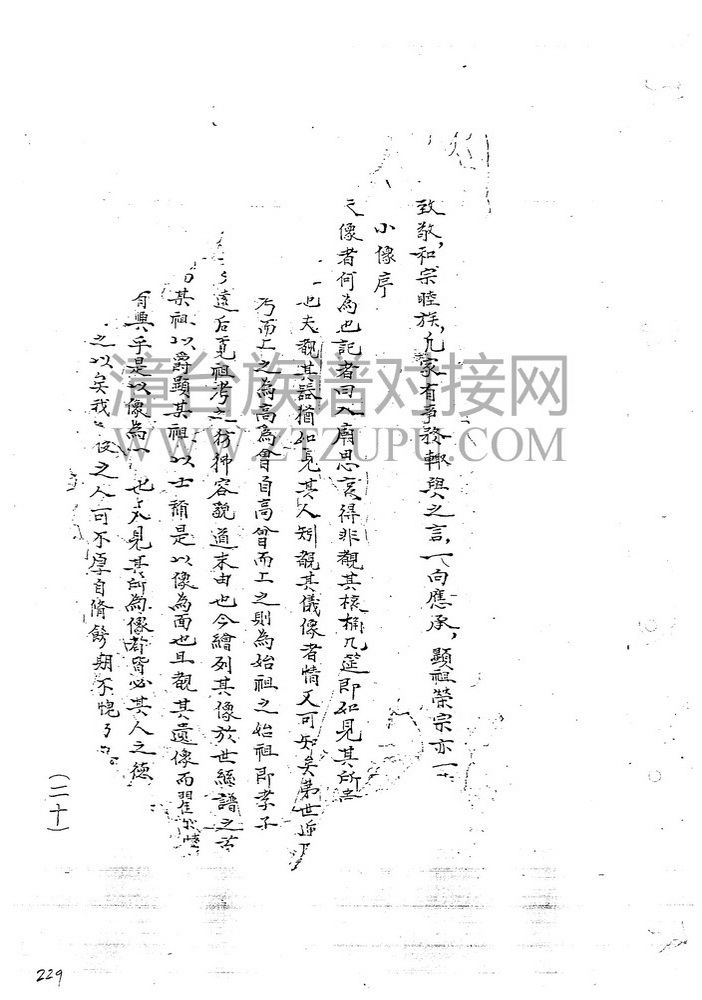 致敬,和宗睦族,凡家有事務輙與之言,一向應承,顯祖榮宗亦一
小像序
像者何為也記者曰入廟思哀得非觀其榱桷几筵即如見其所
也夫觀其器猶如見其人矧觀其儀像者情又可知矣第世近
而上之為高為曾自高曾而上之則為始祖之始祖即孝子
遠后覓祖考之彷彿容貌道末由也今繪列其像於世系譜之首
其祖以爵顯其祖以士誦是以像為面也且觀其遺像而瞿
有興乎是以像為一也人見其所為像者皆必其人之德
之以矣我後之人可不厚自脩飭期不愧
(二十)
229
漳台族谱对接网
WWW.ZTZUPU.COM